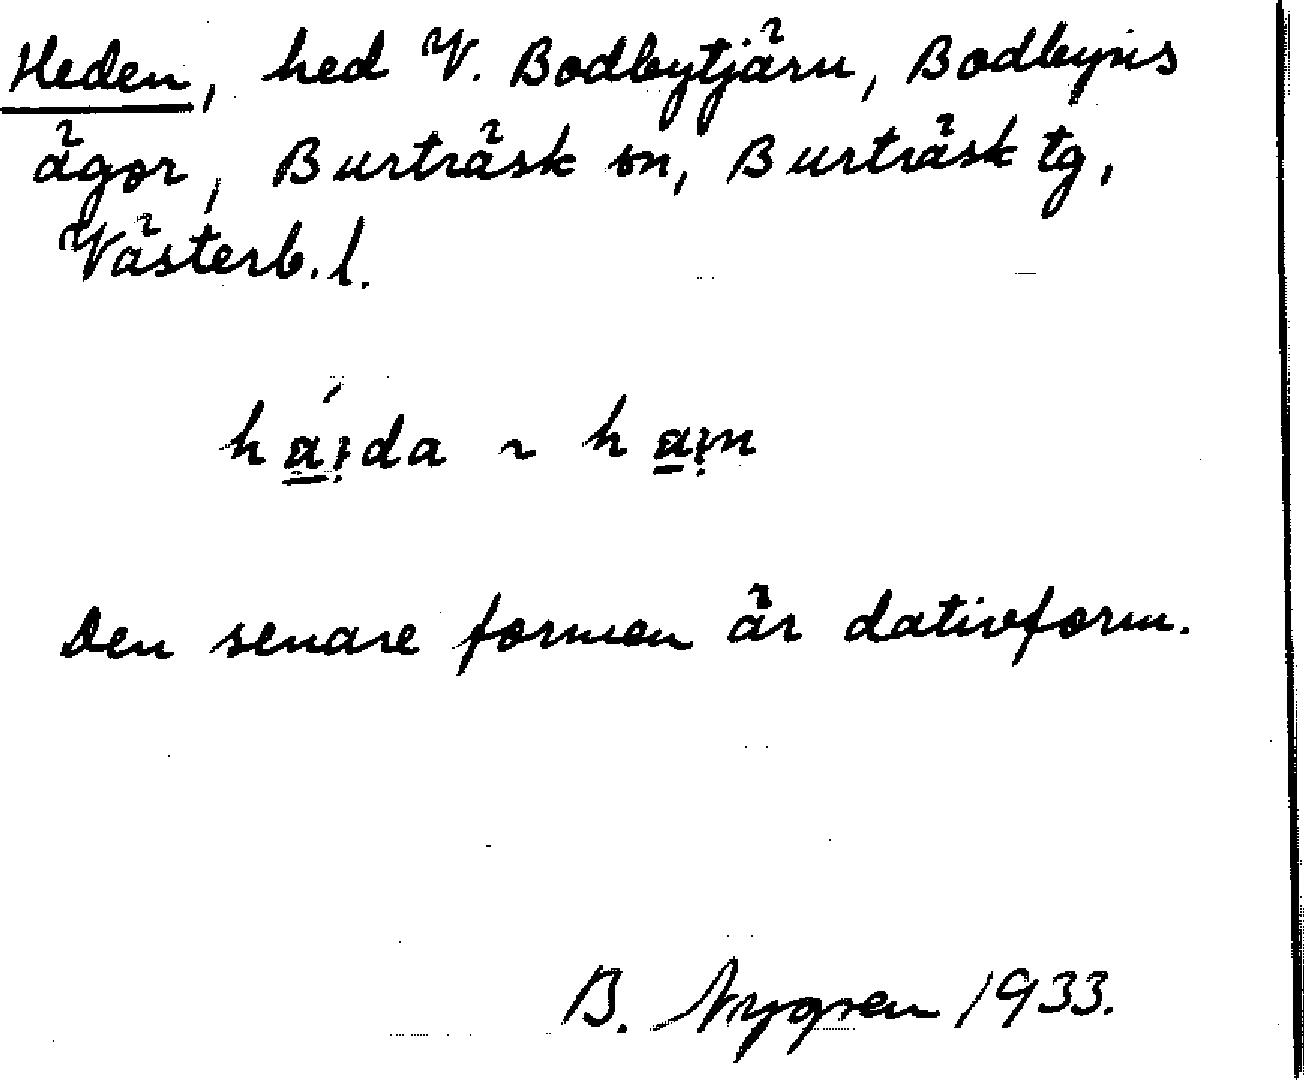 Heden, hed V. Bodbytjärn, Bodbyns
ägor, Burträsk sn, Burträsk tg,
Västerb. l.
háịda ~ haịn
Den senare formen är dativform.
B. Nygren 1933.